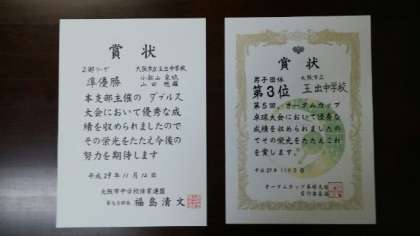 賞状
2部リーグ 大阪市立玉出中学校
準優勝
山田
本支部主催の ダブルス
大会において優秀な成
績を収められましたので
その栄光をたたえ今後の
努力を期待します
平成29年11月12日
大阪市中学校体育連盟
福島清文
賞状
男子団体 大阪市立
第3位 玉出中学校
第5回オータムカップ
卓球大会において優秀な
成績を収められましたので
その栄光をたたえこれ
を賞します。
平成29年11月
オータムカップ